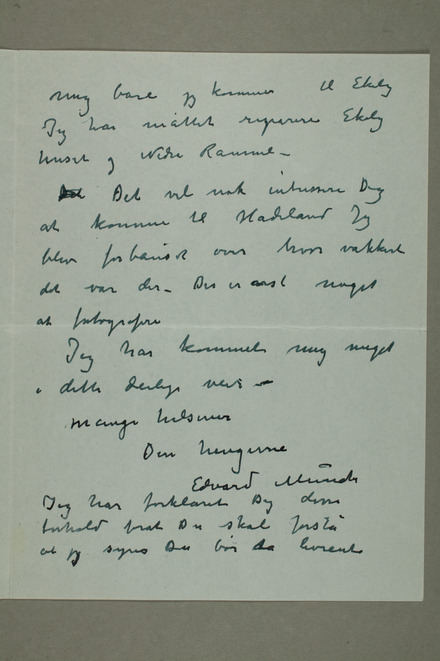 mig bare jeg kommer til Ekely
Jeg har måttet reparere Ekely
huset og Nedre Ramme –
Det vil nok interessere Dig
at komme til Hadeland Jeg
blev forbauset over hvor vakkert
det var der – Der er også meget
at fotografere
Jeg har kommet mig meget
i dette deilige veir –
Mange hilsener
Din hengivne
Edvard Munch
Jeg har forklaret Dig disse
forhold forat Du skal forstå
at jeg synes Du bør